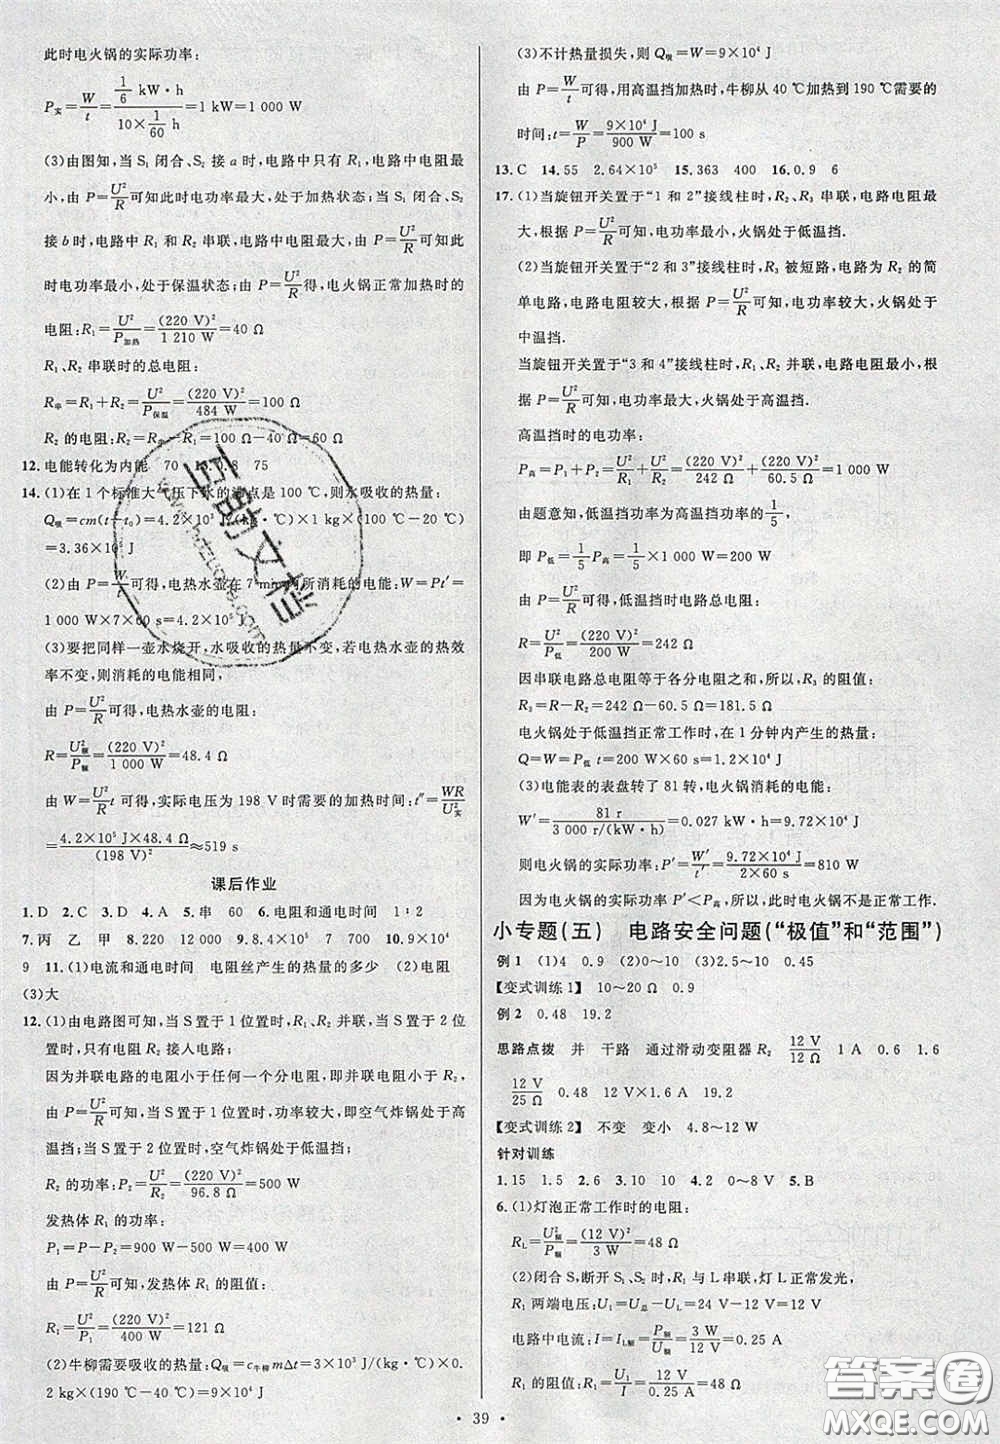 此时电火锅的实际功率:
P实=W/t=(1/6 kW·h)/(10×1/60 h)=1 kW=1 000 W
(3)由图知,当 S₁ 闭合、S₂ 接 a 时,电路中只有 R₁,电路中电阻最
小,由 P=U²/R可知此时电功率最大,处于加热状态;当 S₁ 闭合、S₂
接 b 时,电路中 R₁ 和 R₂ 串联,电路中电阻最大,由 P=U²/R可知此
时电功率最小,处于保温状态;由 P=U²/R得,电火锅正常加热时的
电阻:R₁=U²/P加热=(220 V)²/1 210 W=40 Ω
R₁、R₂ 串联时的总电阻:
R串=R₁+R₂=U²/P保温=(220 V)²/484 W=100 Ω
R₂ 的电阻:R₂=R串-R₁=100 Ω-40 Ω=60 Ω
12.电能转化为内能 70 13.0.8 75
14.(1)在 1 个标准大气压下水的沸点是 100 ℃,则水吸收的热量:
Q吸=cm(t-t₀)=4.2×10³ J/(kg·℃)×1 kg×(100 ℃-20 ℃)
=3.36×10⁵ J
(2)由 P=W/t可得,电热水壶在 7 min 内所消耗的电能:W=Pt′=
1 000 W×7×60 s=4.2×10⁵ J
(3)要把同样一壶水烧开,水吸收的热量不变,若电热水壶的热效
率不变,则消耗的电能相同,
由 P=U²/R可得,电热水壶的电阻:
R=U额²/P额=(220 V)²/1 000 W=48.4 Ω
由 W=U²/R t 可得,实际电压为 198 V 时需要的加热时间:t″=WR/U实²
=4.2×10⁵ J×48.4 Ω/(198 V)²≈519 s
课后作业
1.D 2.C 3.D 4.A 5.串 60 6.电阻和通电时间 1∶2
7.丙 乙 甲 8.220 12 000 9.8.8 1 100 10.9×10⁴
9 11.(1)电流和通电时间 电阻丝产生的热量的多少 (2)电阻
(3)大
12.(1)由电路图可知,当 S 置于 1 位置时,R₁、R₂ 并联,当 S 置于 2 位
置时,只有电阻 R₂ 接入电路;
因为并联电路的电阻小于任何一个分电阻,即并联电阻小于 R₂,
由 P=U²/R可知,当 S 置于 1 位置时,功率较大,即空气炸锅处于高
温挡;当 S 置于 2 位置时,空气炸锅处于低温挡;
R₂ 的功率:P₂=U²/R₂=(220 V)²/96.8 Ω=500 W
发热体 R₁ 的功率:
P₁=P-P₂=900 W-500 W=400 W
由 P=U²/R可知,发热体 R₁ 的阻值:
R₁=U²/P₁=(220 V)²/400 W=121 Ω
(2)牛柳需要吸收的热量:Q吸=c牛柳mΔt=3×10³ J/(kg·℃)×0.
2 kg×(190 ℃-40 ℃)=9×10⁴ J
(3)不计热量损失,则 Q吸=W=9×10⁴ J
由 P=W/t可得,用高温挡加热时,牛柳从 40 ℃加热到 190 ℃需要的
时间:t=W/P=9×10⁴ J/900 W=100 s
13.C 14.55 2.64×10⁵ 15.363 400 16.0.9 6
17.(1)当旋钮开关置于“1 和 2”接线柱时,R₂、R₃ 串联,电路电阻最
大,根据 P=U²/R可知,电功率最小,火锅处于低温挡.
(2)当旋钮开关置于“2 和 3”接线柱时,R₃ 被短路,电路为 R₂ 的简
单电路,电路电阻较大,根据 P=U²/R可知,电功率较大,火锅处于
中温挡.
当旋钮开关置于“3 和 4”接线柱时,R₁、R₂ 并联,电路电阻最小,根
据 P=U²/R可知,电功率最大,火锅处于高温挡.
高温挡时的电功率:
P高=P₁+P₂=U²/R₁+U²/R₂=(220 V)²/242 Ω+(220 V)²/60.5 Ω=1 000 W
由题意知,低温挡功率为高温挡功率的1/5,
即 P低=1/5P高=1/5×1 000 W=200 W
由 P=U²/R可得,低温挡时电路总电阻:
R=U²/P低=(220 V)²/200 W=242 Ω
因串联电路总电阻等于各分电阻之和,所以,R₃ 的阻值:
R₃=R-R₂=242 Ω-60.5 Ω=181.5 Ω
电火锅处于低温挡正常工作时,在 1 分钟内产生的热量:
Q=W=P低t=200 W×60 s=1.2×10⁴ J
(3)电能表的表盘转了 81 转,电火锅消耗的电能:
W′=81 r/3 000 r/(kW·h)=0.027 kW·h=9.72×10⁴ J
则电火锅的实际功率:P′=W′/t=9.72×10⁴ J/2×60 s=810 W
因为电火锅的实际功率 P′<P高,所以,此时电火锅不能正常工作.
小专题(五) 电路安全问题(“极值”和“范围”)
例 1 (1)4 0.9 (2)0~10 (3)2.5 0.45
【变式训练 1】 10~20 Ω 0.9
例 2 0.48 19.2
思路点拨 并 干路 通过滑动变阻器 R₂ 12 V/12 Ω 1 A 0.6 1.6
12 V/25 Ω 0.48 12 V×1.6 A 19.2
【变式训练 2】 不变 变小 4.8~12 W
针对训练
1.15 1.5 2.6 3.10 10 4.2 0~8 V 5.B
6.(1)灯泡正常工作时的电阻:
R_L=U额²/P额=(12 V)²/3 W=48 Ω
(2)闭合 S,断开 S₁、S₂ 时,R₁ 与 L 串联,灯 L 正常发光,
R₁ 两端电压:U₁=U总-U_L=24 V-12 V=12 V
电路中电流:I=I_L额=P额/U额=3 W/12 V=0.25 A
R₁ 的阻值:R₁=U₁/I=12 V/0.25 A=48 Ω
· 39 ·
答案圈
MXQE.COM
互助文档